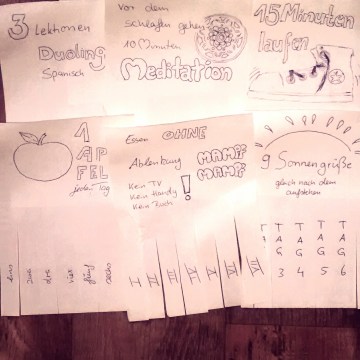 3 Lektionen
Duoling
Spanisch
Vor dem
schlafen gehen
10 Minuten
Meditation
15 Minuten
laufen
1
AP
FEL
jeden Tag
eins
zwei
drei
vier
fünf
sechs
Essen OHNE
Ablenkung
MAMPF
MAMPF
Kein TV
Kein Handy
Kein Buch
!
I
II
III
IV
V
VI
VII
9 Sonnengrüße
gleich nach dem
aufstehen
TAG 3
TAG 4
TAG 5
TAG 6